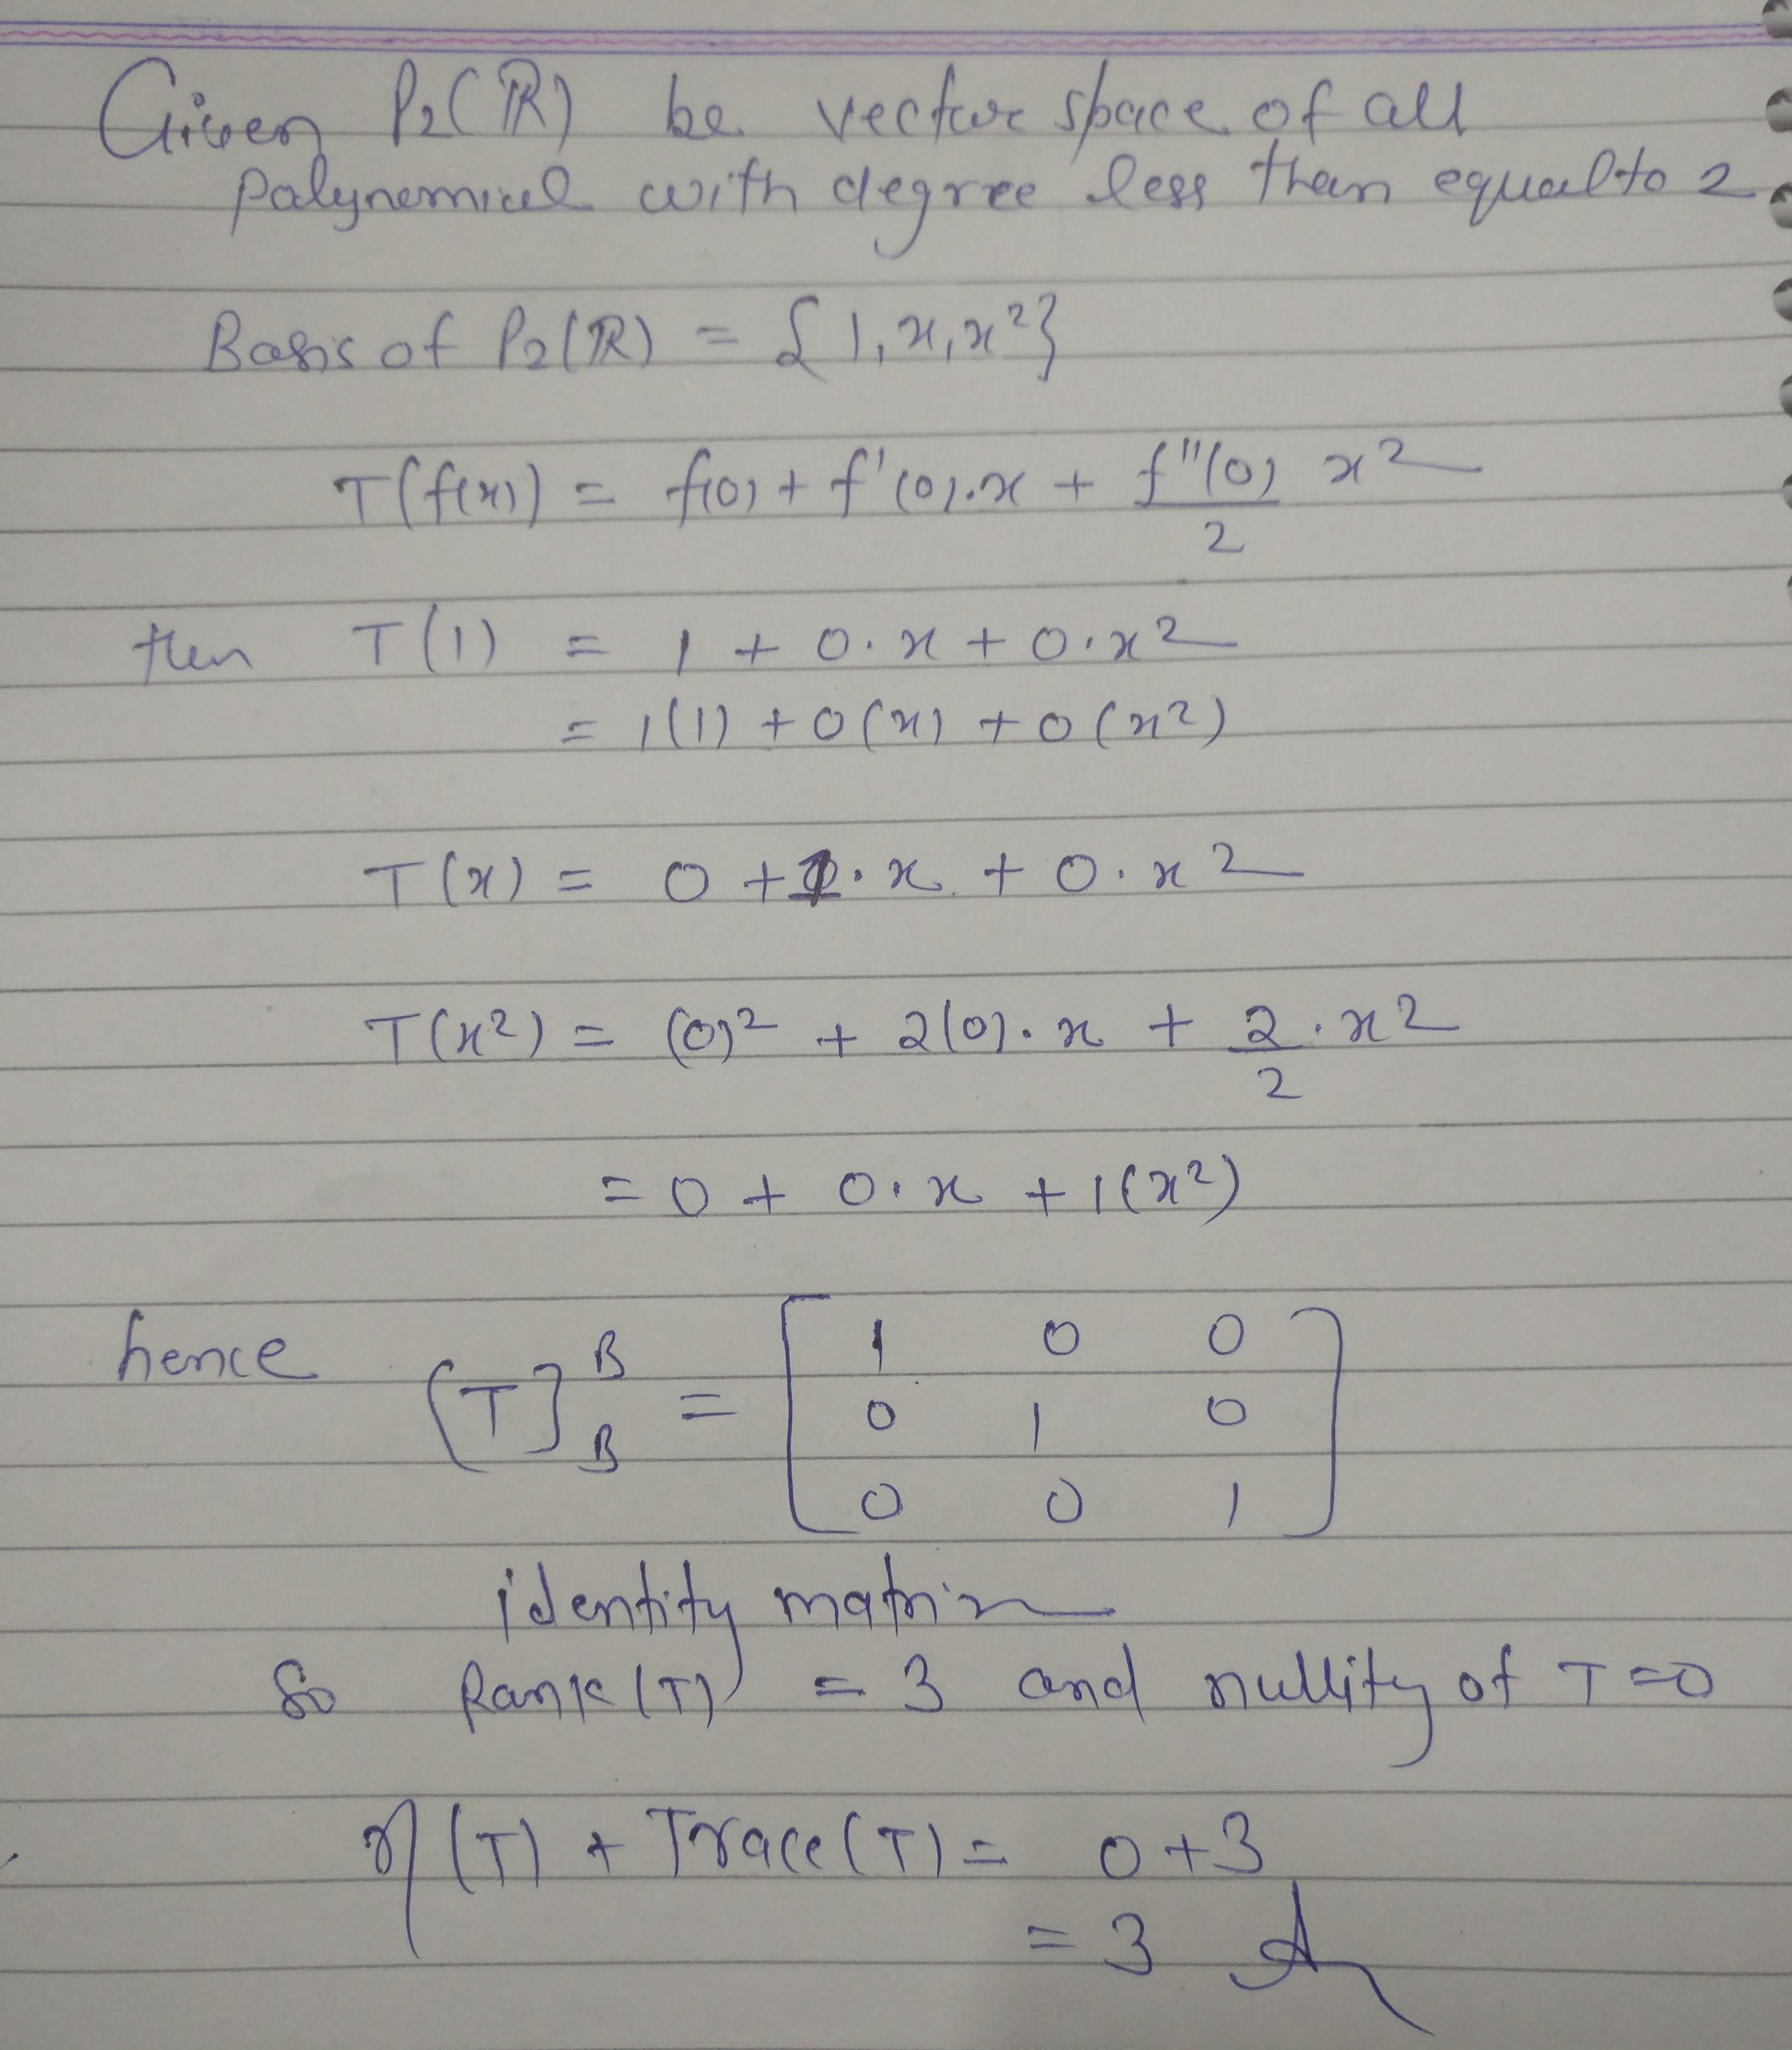 Given P₂(ℝ) be vector space of all
polynomial with degree less than equal to 2
Basis of P₂(ℝ) = {1, x, x²}
T(f(x)) = f(0) + f'(0).x + f''(0)/2 x²
then T(1) = 1 + 0.x + 0.x²
= 1(1) + 0(x) + 0(x²)
T(x) = 0 + 1.x + 0.x²
T(x²) = (0)² + 2(0).x + 2/2 .x²
= 0 + 0.x + 1(x²)
hence [T]ᴮ_B = [1 0 0
0 1 0
0 0 1]
identity matrix
So Rank(T) = 3 and nullity of T = 0
η(T) + Trace(T) = 0 + 3
= 3 A